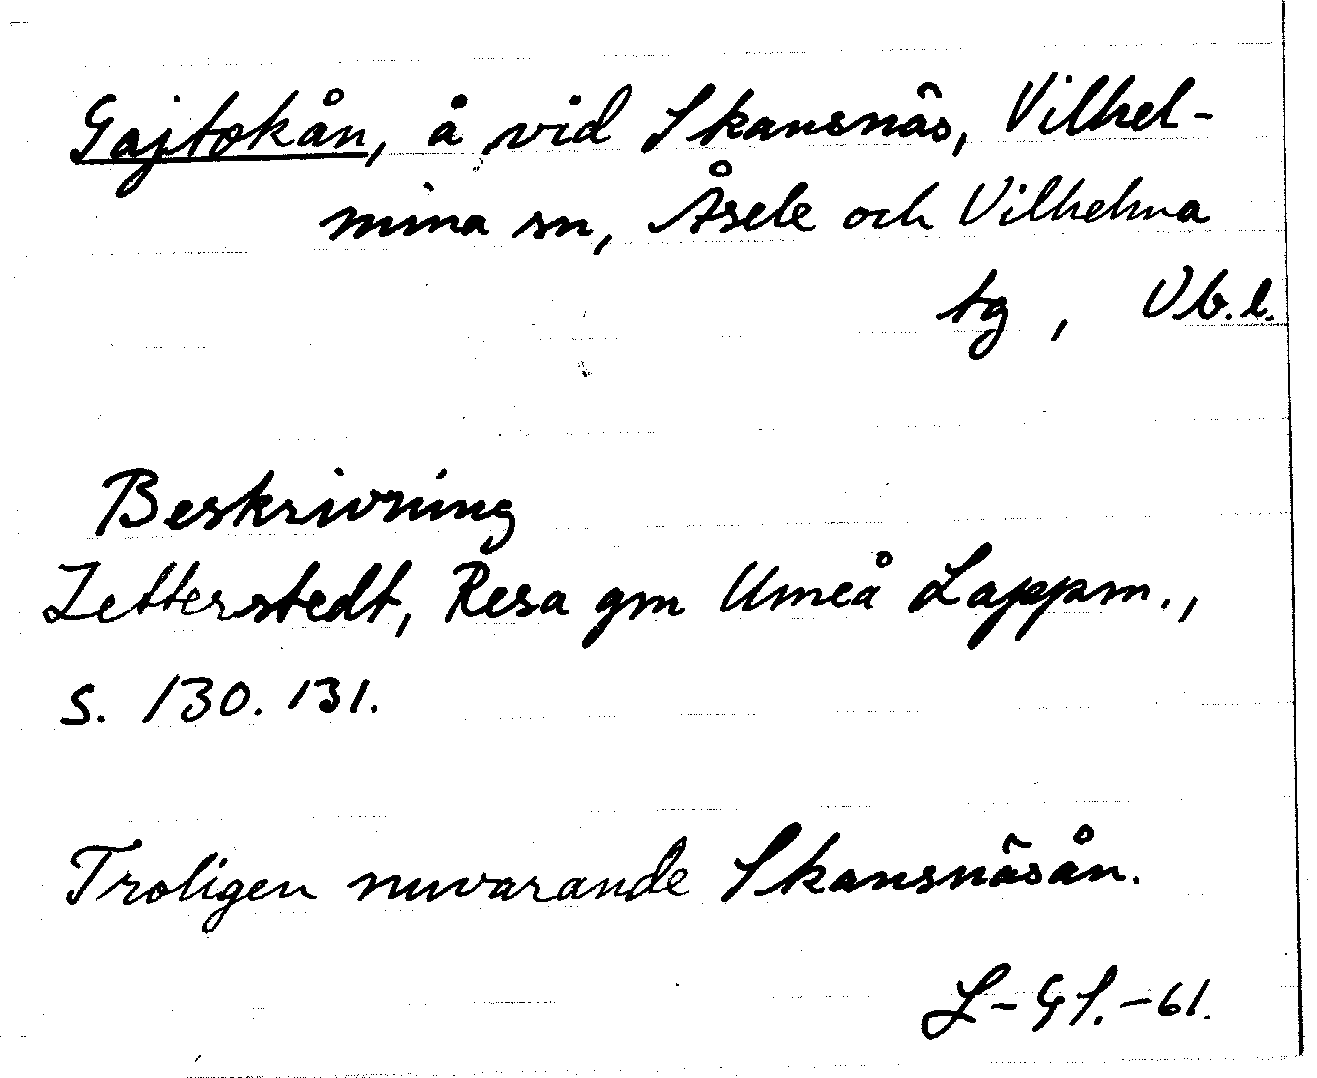 Gajtokån, å vid Skansnäs, Vilhel-
mina sn, Åsele och Vilhelma
tg, Vb.l.
Beskrivning
Zetterstedt, Resa gm Umeå Lappm.,
s. 130. 131.
Troligen nuvarande Skansnäsån.
L-GS.-61.